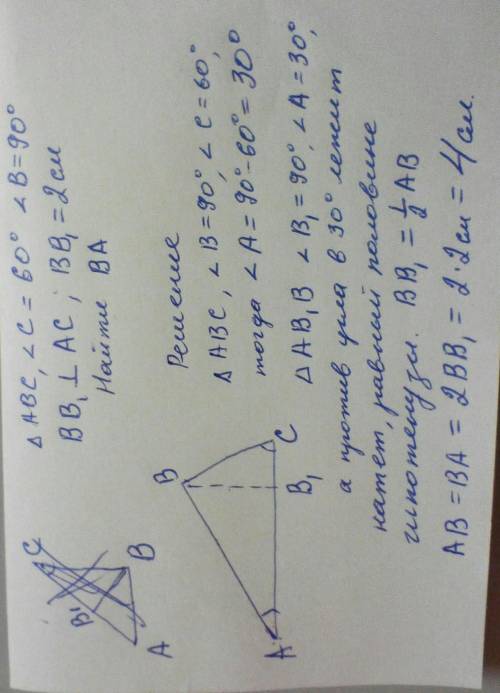 △ABC, ∠C = 60° ∠B = 90°
BB₁ ⊥ AC; BB₁ = 2 см
Найти BA
C
B'
A
B
Решение
△ABC, ∠B = 90°, ∠C = 60°,
тогда ∠A = 90° - 60° = 30°
B
A
B₁
C
△AB₁B ∠B₁ = 90°, ∠A = 30°,
а против угла в 30° лежит
катет, равный половине
гипотенузы. BB₁ = ½ AB
AB = BA = 2BB₁ = 2·2 см = 4 см.